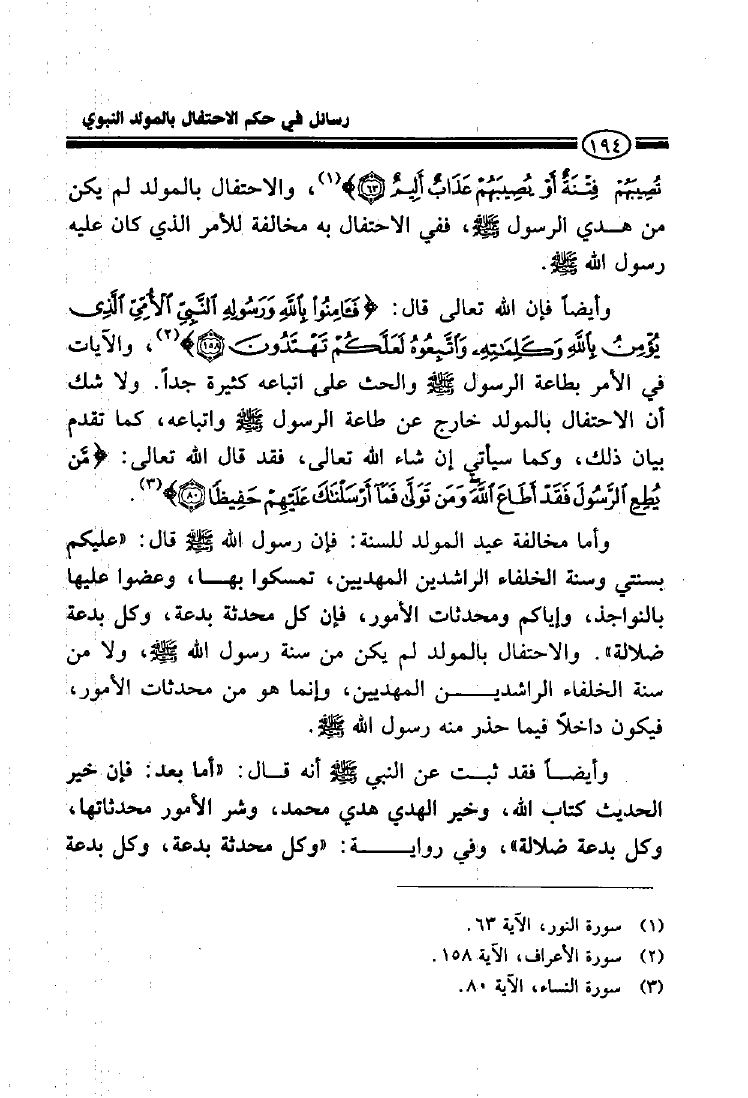 رسائل في حكم الاحتفال بالمولد النبوي
١٩٤
تُصِيبَهُمْ فِتْنَةٌ أَوْ يُصِيبَهُمْ عَذَابٌ أَلِيمٌ ٦٣﴾(١)، والاحتفال بالمولد لم يكن
من هـدي الرسول ﷺ، ففي الاحتفال به مخالفة للأمر الذي كان عليه
رسول الله ﷺ.
وأيضاً فإن الله تعالى قال: ﴿فَـَٔامِنُوا۟ بِٱللَّهِ وَرَسُولِهِ ٱلنَّبِيِّ ٱلْأُمِّيِّ ٱلَّذِى
يُؤْمِنُ بِٱللَّهِ وَكَلِمَٰتِهِۦ وَٱتَّبِعُوهُ لَعَلَّكُمْ تَهْتَدُونَ ١٥٨﴾(٢)، والآيات
في الأمر بطاعة الرسول ﷺ والحث على اتباعه كثيرة جداً. ولا شك
أن الاحتفال بالمولد خارج عن طاعة الرسول ﷺ واتباعه، كما تقدم
بيان ذلك، وكما سيأتي إن شاء الله تعالى، فقد قال الله تعالى: ﴿مَّن
يُطِعِ ٱلرَّسُولَ فَقَدْ أَطَاعَ ٱللَّهَ وَمَن تَوَلَّىٰ فَمَآ أَرْسَلْنَٰكَ عَلَيْهِمْ حَفِيظًا ٨٠﴾(٣).
وأما مخالفة عيد المولد للسنة: فإن رسول الله ﷺ قال: «عليكم
بسنتي وسنة الخلفاء الراشدين المهديين، تمسكوا بهـا، وعضوا عليها
بالنواجذ، وإياكم ومحدثات الأمور، فإن كل محدثة بدعة، وكل بدعة
ضلالة». والاحتفال بالمولد لم يكن من سنة رسول الله ﷺ، ولا من
سنة الخلفاء الراشديـــن المهديين، وإنما هو من محدثات الأمور،
فيكون داخلاً فيما حذر منه رسول الله ﷺ.
وأيضـاً فقد ثبـت عن النبي ﷺ أنه قـال: «أما بعد: فإن خير
الحديث كتاب الله، وخير الهدي هدي محمد، وشر الأمور محدثاتها،
وكل بدعة ضلالة»، وفي روايـــــة: «وكل محدثة بدعة، وكل بدعة
(١) سورة النور، الآية ٦٣.
(٢) سورة الأعراف، الآية ١٥٨.
(٣) سورة النساء، الآية ٨٠.